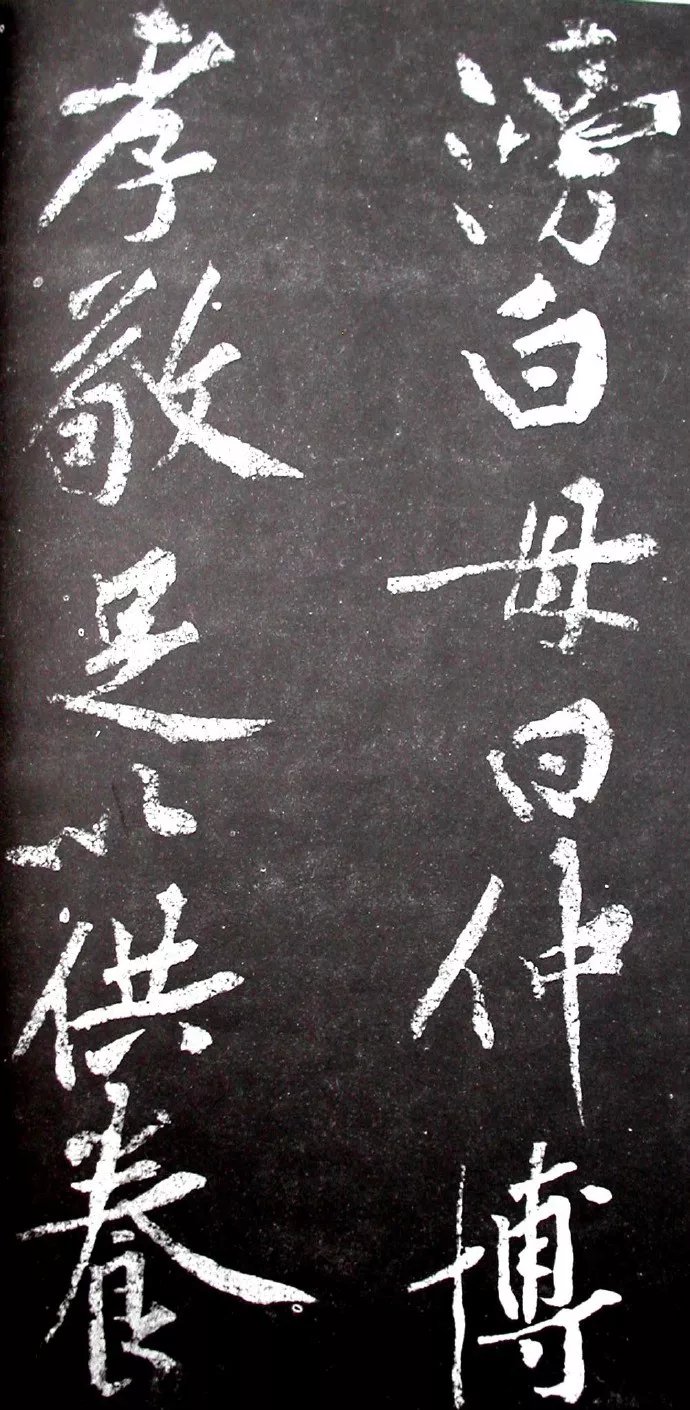 滂白母曰仲博
孝敬足以供養